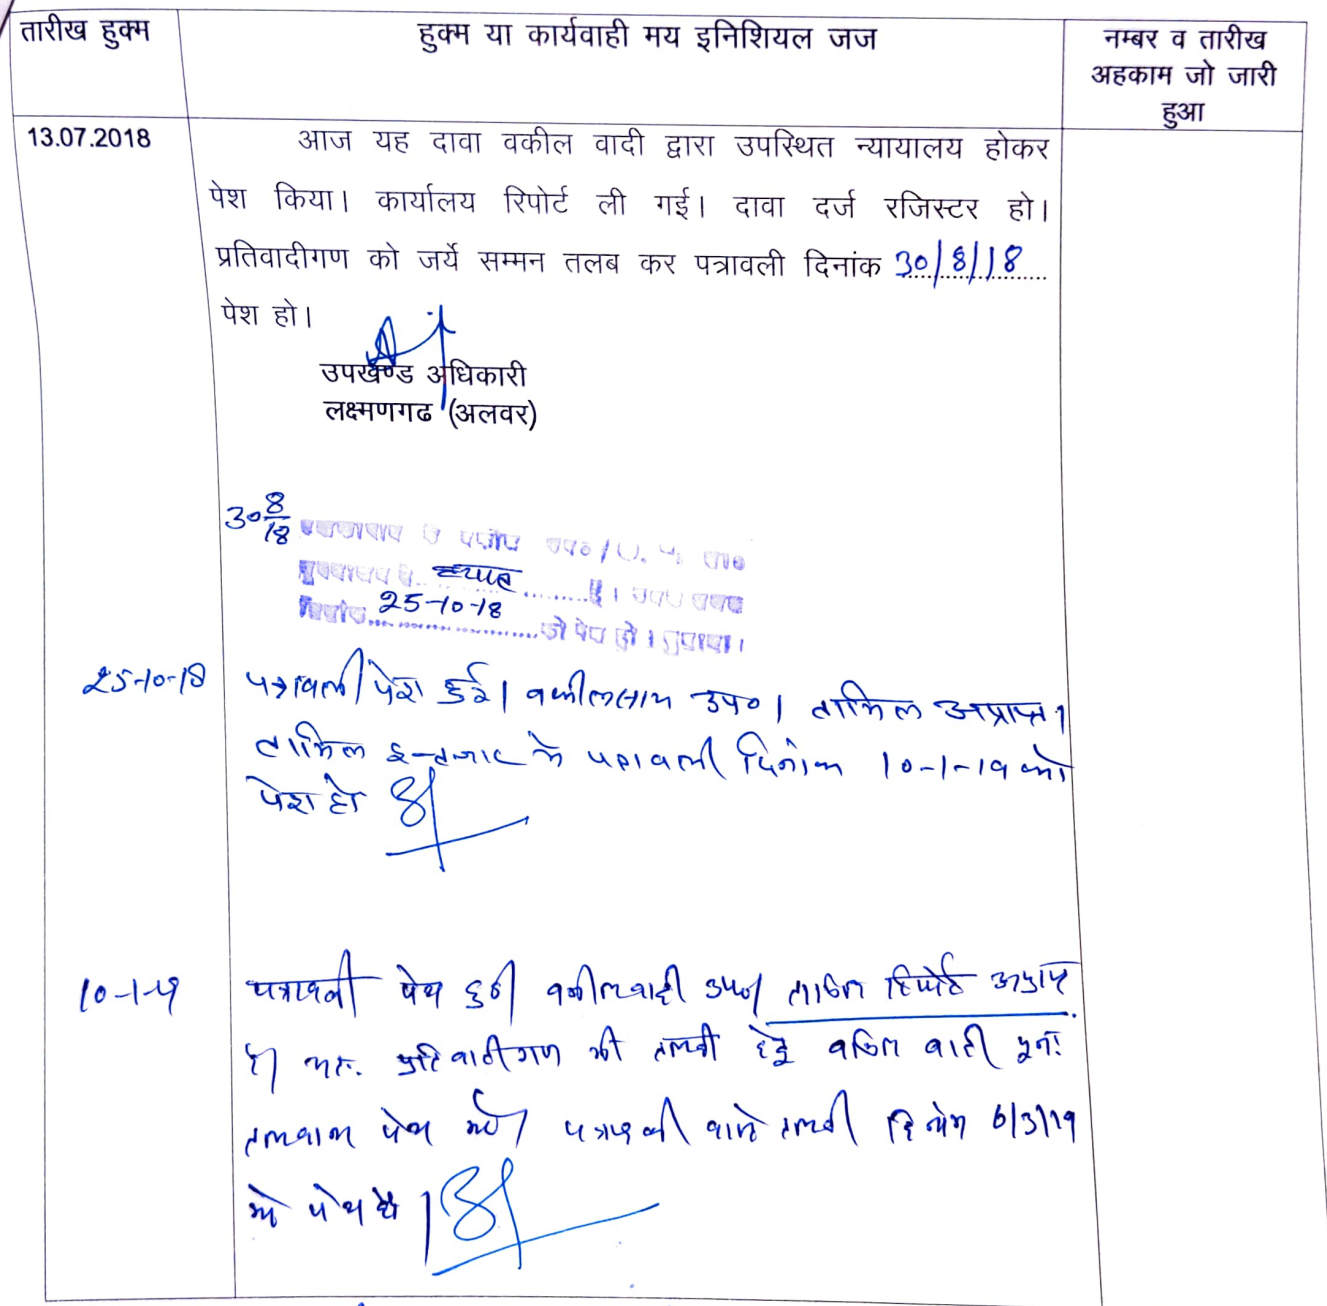 तारीख हुक्म
हुक्म या कार्यवाही मय इनिशियल जज
नम्बर व तारीख
अहकाम जो जारी
हुआ
13.07.2018
आज यह दावा वकील वादी द्वारा उपस्थित न्यायालय होकर
पेश किया। कार्यालय रिपोर्ट ली गई। दावा दर्ज रजिस्टर हो।
प्रतिवादीगण को जर्ये सम्मन तलब कर पत्रावली दिनांक 30/8/18
पेश हो।
उपखण्ड अधिकारी
लक्ष्मणगढ (अलवर)
30 8/18
25-10-18
को पेश हो।
25-10-18 पत्रावली पेश हुई। वकीलसाब उप०। तामिल अप्राप्त।
तामिल इन्तजार के पत्रावली दिनांक 10-1-19 को
पेश हो
10-1-19 पत्रावली पेश हुई वकीलवादी उप० तामिल रिपोर्ट अप्राप्त
है। अतः प्रतिवादीगण की तलबी हेतु वकिल वादी पुनः
तलबाना पेश करे। पत्रावली वास्ते तलबी दिनांक 6/3/19
को पेश हो।